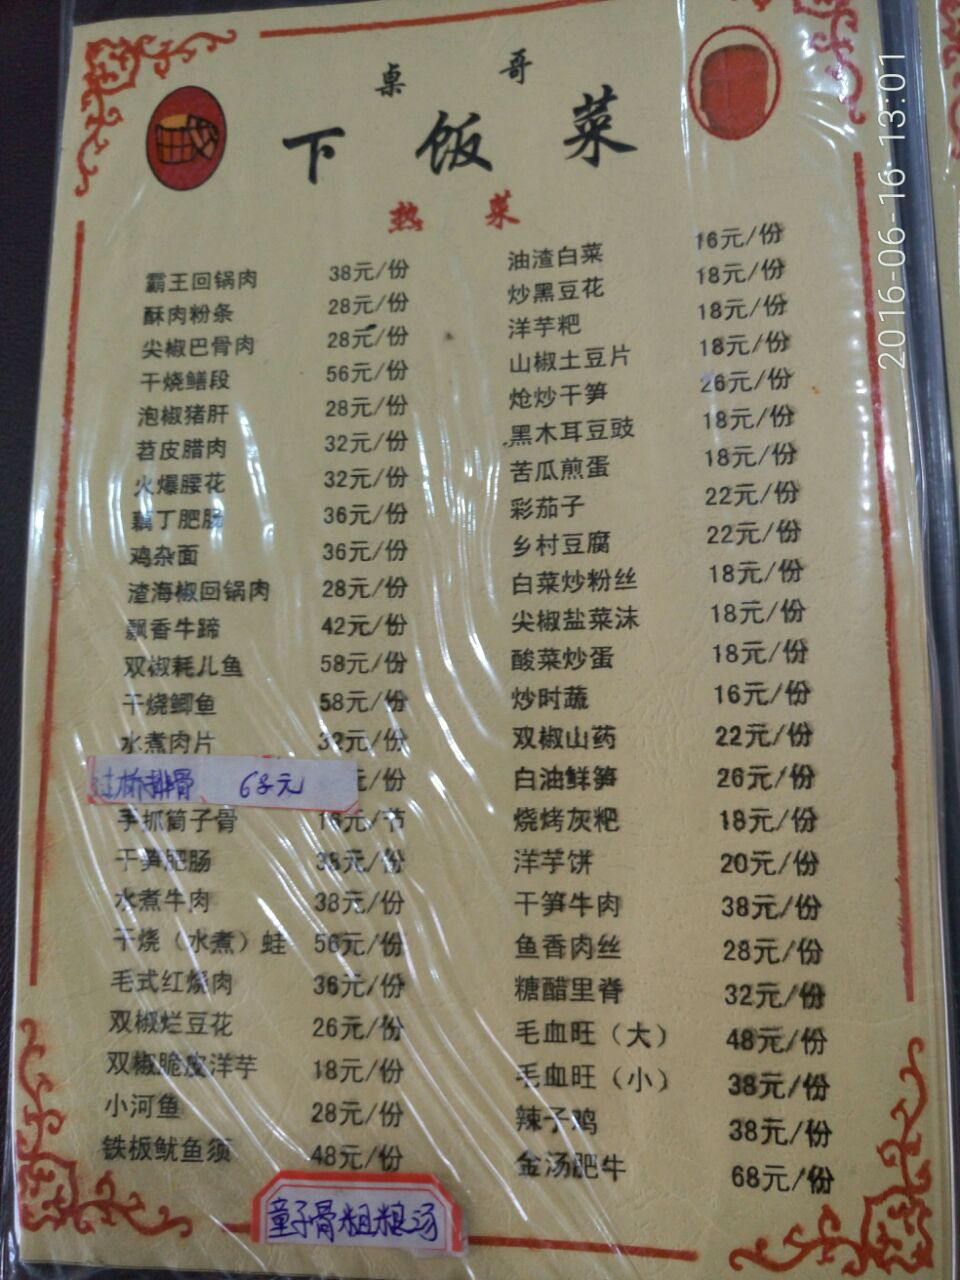 桌哥
下饭菜
热菜
霸王回锅肉 38元/份
酥肉粉条 28元/份
尖椒巴骨肉 28元/份
干烧鳝段 56元/份
泡椒猪肝 28元/份
苕皮腊肉 32元/份
火爆腰花 32元/份
藕丁肥肠 36元/份
鸡杂面 36元/份
渣海椒回锅肉 28元/份
飘香牛蹄 42元/份
双椒耗儿鱼 58元/份
干烧鲫鱼 58元/份
水煮肉片 32元/份
过桥排骨 68元 元/份
手抓筒子骨 16元/节
干笋肥肠 38元/份
水煮牛肉 38元/份
干烧（水煮）蛙 56元/份
毛式红烧肉 36元/份
双椒烂豆花 26元/份
双椒脆皮洋芋 18元/份
小河鱼 28元/份
铁板鱿鱼须 48元/份
油渣白菜 16元/份
炒黑豆花 18元/份
洋芋粑 18元/份
山椒土豆片 18元/份
炝炒干笋 26元/份
黑木耳豆豉 18元/份
苦瓜煎蛋 18元/份
彩茄子 22元/份
乡村豆腐 22元/份
白菜炒粉丝 18元/份
尖椒盐菜沫 18元/份
酸菜炒蛋 18元/份
炒时蔬 16元/份
双椒山药 22元/份
白油鲜笋 26元/份
烧烤灰粑 18元/份
洋芋饼 20元/份
干笋牛肉 38元/份
鱼香肉丝 28元/份
糖醋里脊 32元/份
毛血旺（大） 48元/份
毛血旺（小） 38元/份
辣子鸡 38元/份
金汤肥牛 68元/份
童子骨粗粮汤
2016-06-16 13:01